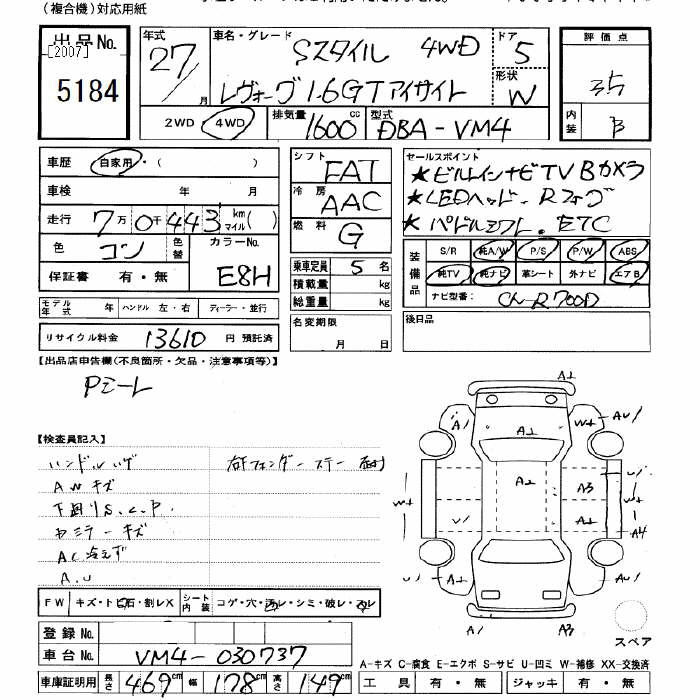 (複合機)対応用紙
出品No. [2007] 5184
年式 27/ 月
車名・グレード Sスタイル 4WD
レヴォーグ1.6GTアイサイト
ドア 5
形状 W
評価点 3.5
内装 B
2WD 4WD 排気量 1600 cc 型式 DBA-VM4
車歴 自家用・( )
車検 年 月
走行 7万0千443 km マイル( )
色 コン 色替 カラーNo. E8H
保証書 有・無
モデル年式 年 ハンドル 左・右 ディーラー・並行
リサイクル料金 13610 円 預託済
シフト FAT
冷房 AAC
燃料 G
乗車定員 5 名
積載量 kg
総重量 kg
名変期限 月 日
セールスポイント
★ビルトインナビTVBカメラ
★LEDヘッド.Rフォグ
★パドルシフト.ETC
装備品 S/R 純A/W P/S P/W ABS
純TV 純ナビ 革シート 外ナビ エアB
ナビ型番: CN-R700D
後日品
【出品店申告欄(不良箇所・欠品・注意事項等)】
Pミーレ
【検査員記入】
ハンドルハゲ
AWキズ
下回りS.C.P.
ルミラーキズ
AC冷えず
A.U
右Fフェンダーステー
FW キズ・トビ石・割レX シート内装 コゲ・穴・汚レ・シミ・破レ・スレ
登録No.
車台No. VM4-030737
車庫証明用 長さ 469cm 幅 178cm 高さ 149cm
A⊥
A/
⊥
AU/
A⊥
U/
W⊥
A3
W⊥
U/
A⊥
A4
U/
A⊥
⊥
A⊥
A/
A3
スペア
A-キズ C-腐食 E-エクボ S-サビ U-凹ミ W-補修 XX-交換済
工具 有・無 ジャッキ 有・無